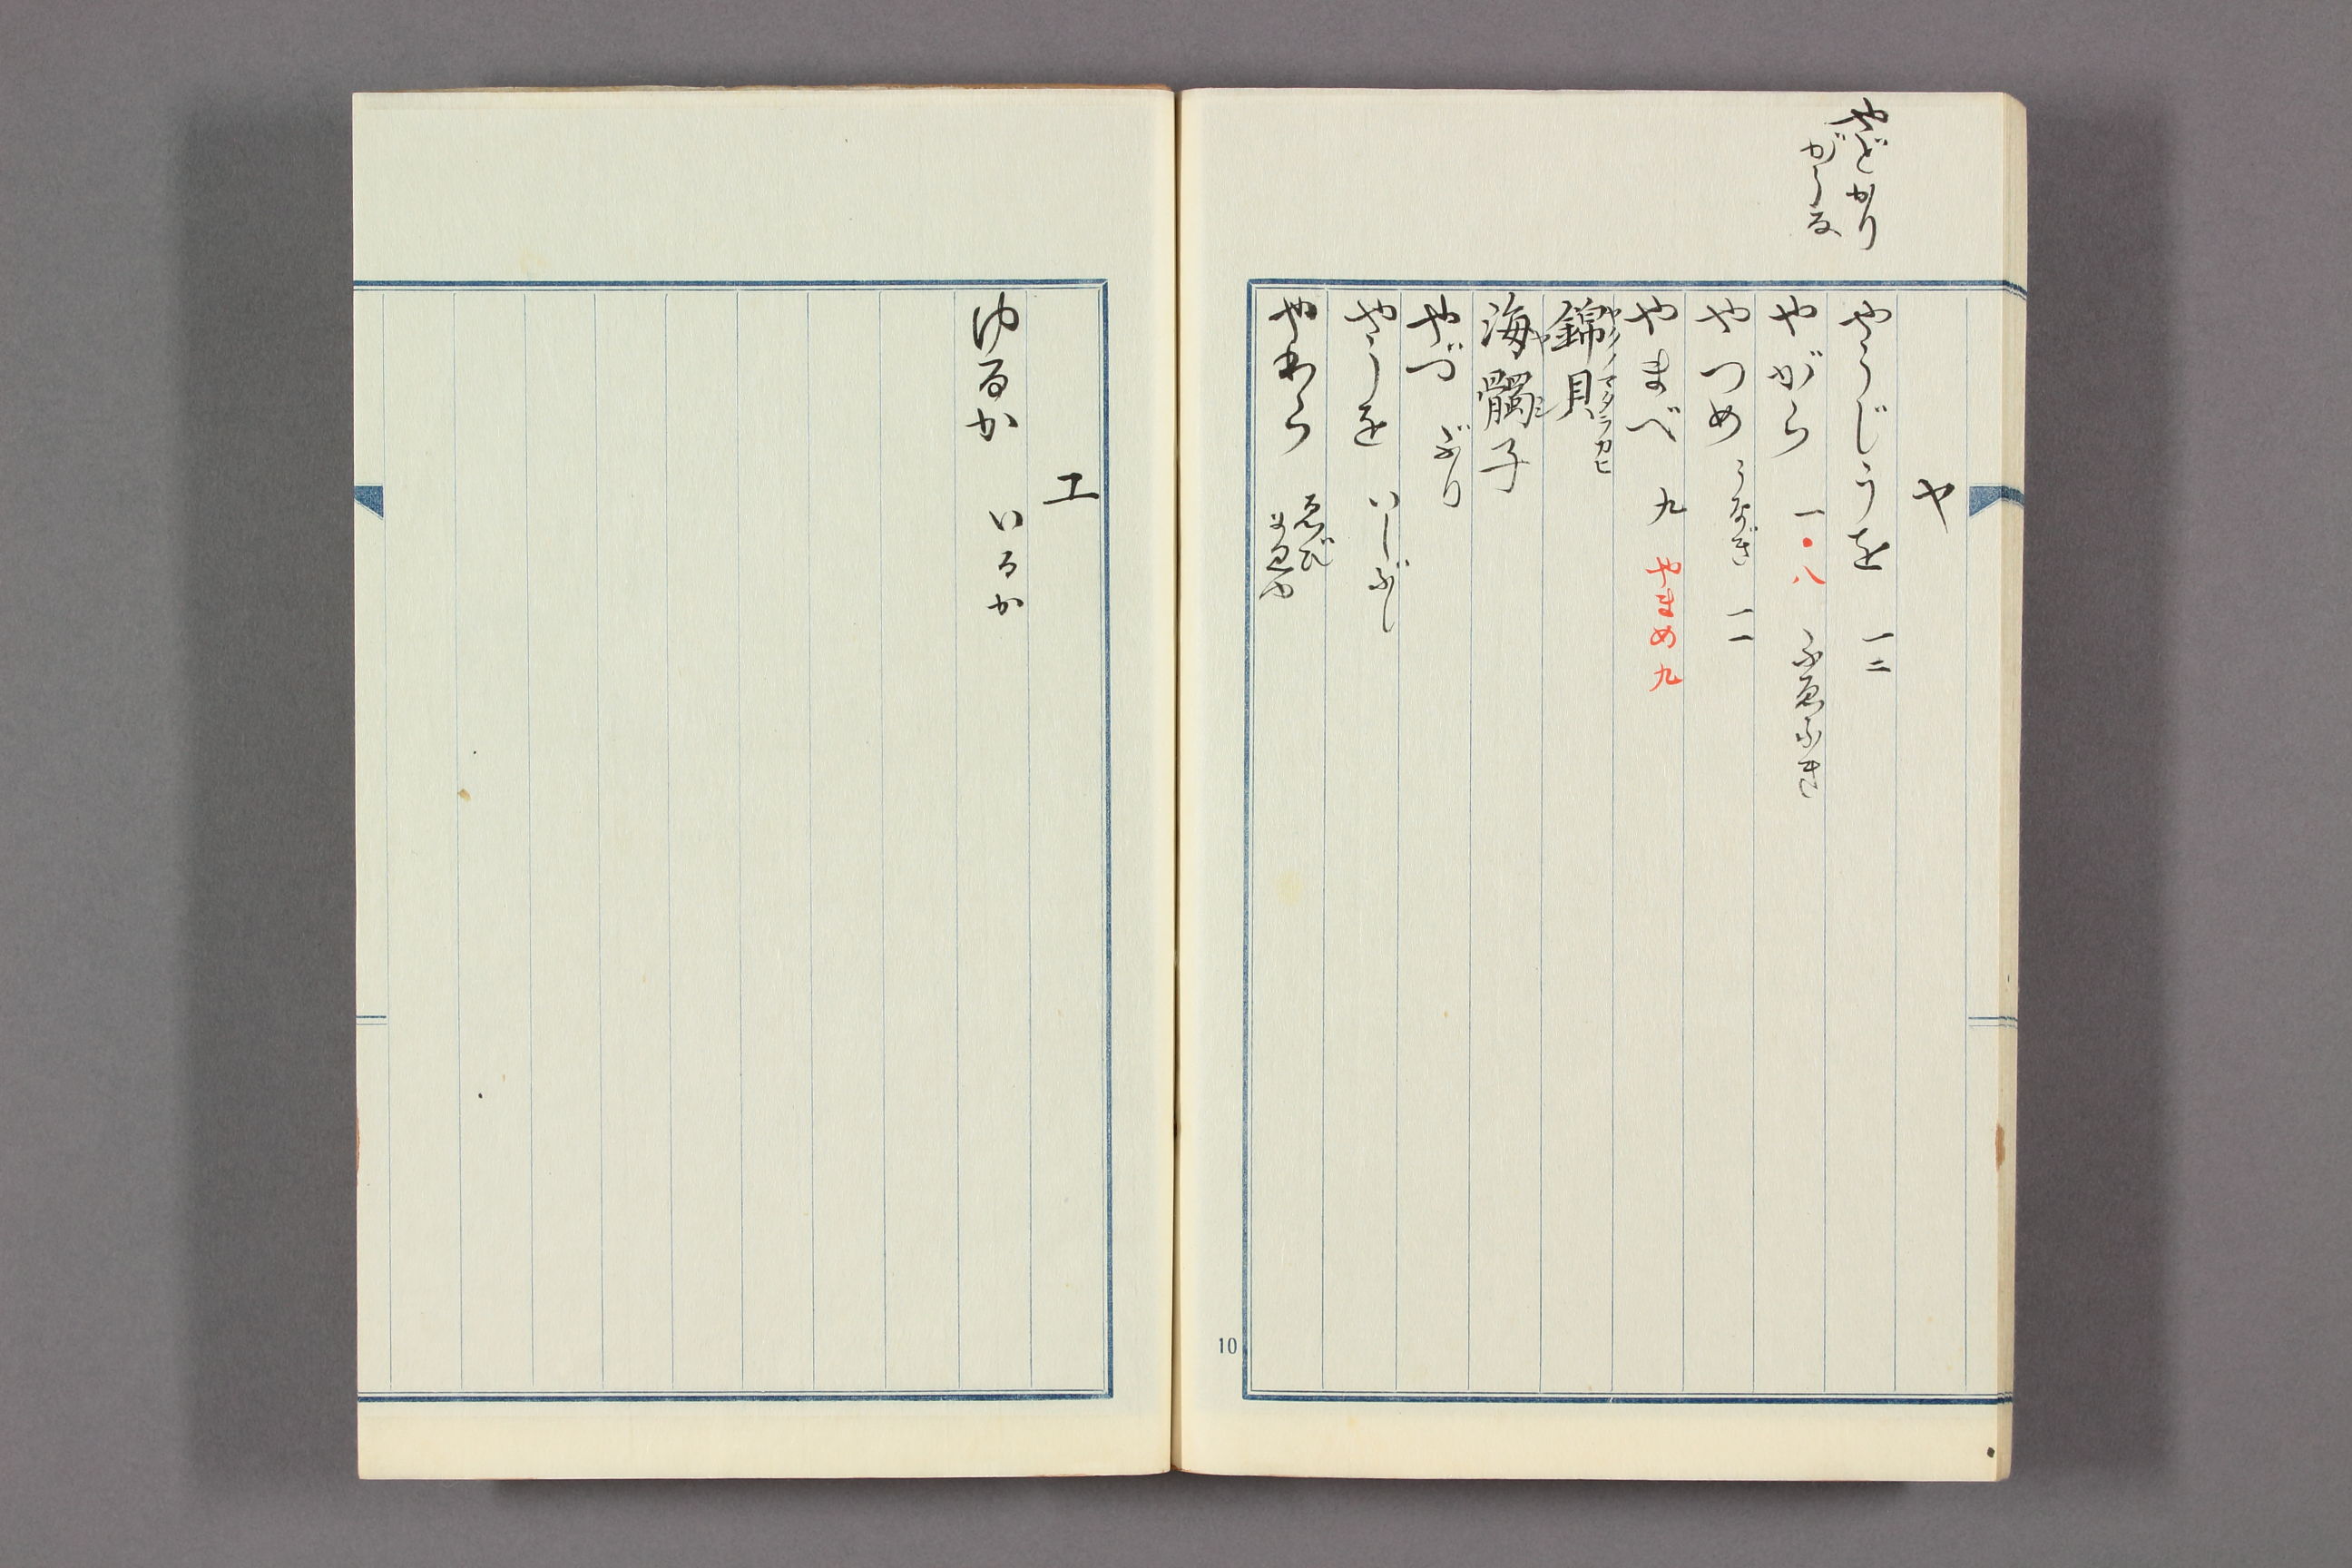 やどかり
がうな
ヤ
やうじうを 一二
やがら 一・八 ふゑふき
やつめ うなぎ 一一
やまべ 九 やまめ 九
錦貝 ヤクノマダラカヒ
海髑子
やづ ぶり
やうを いしぶし
ゑび
10
ユ
ゆるか いるか